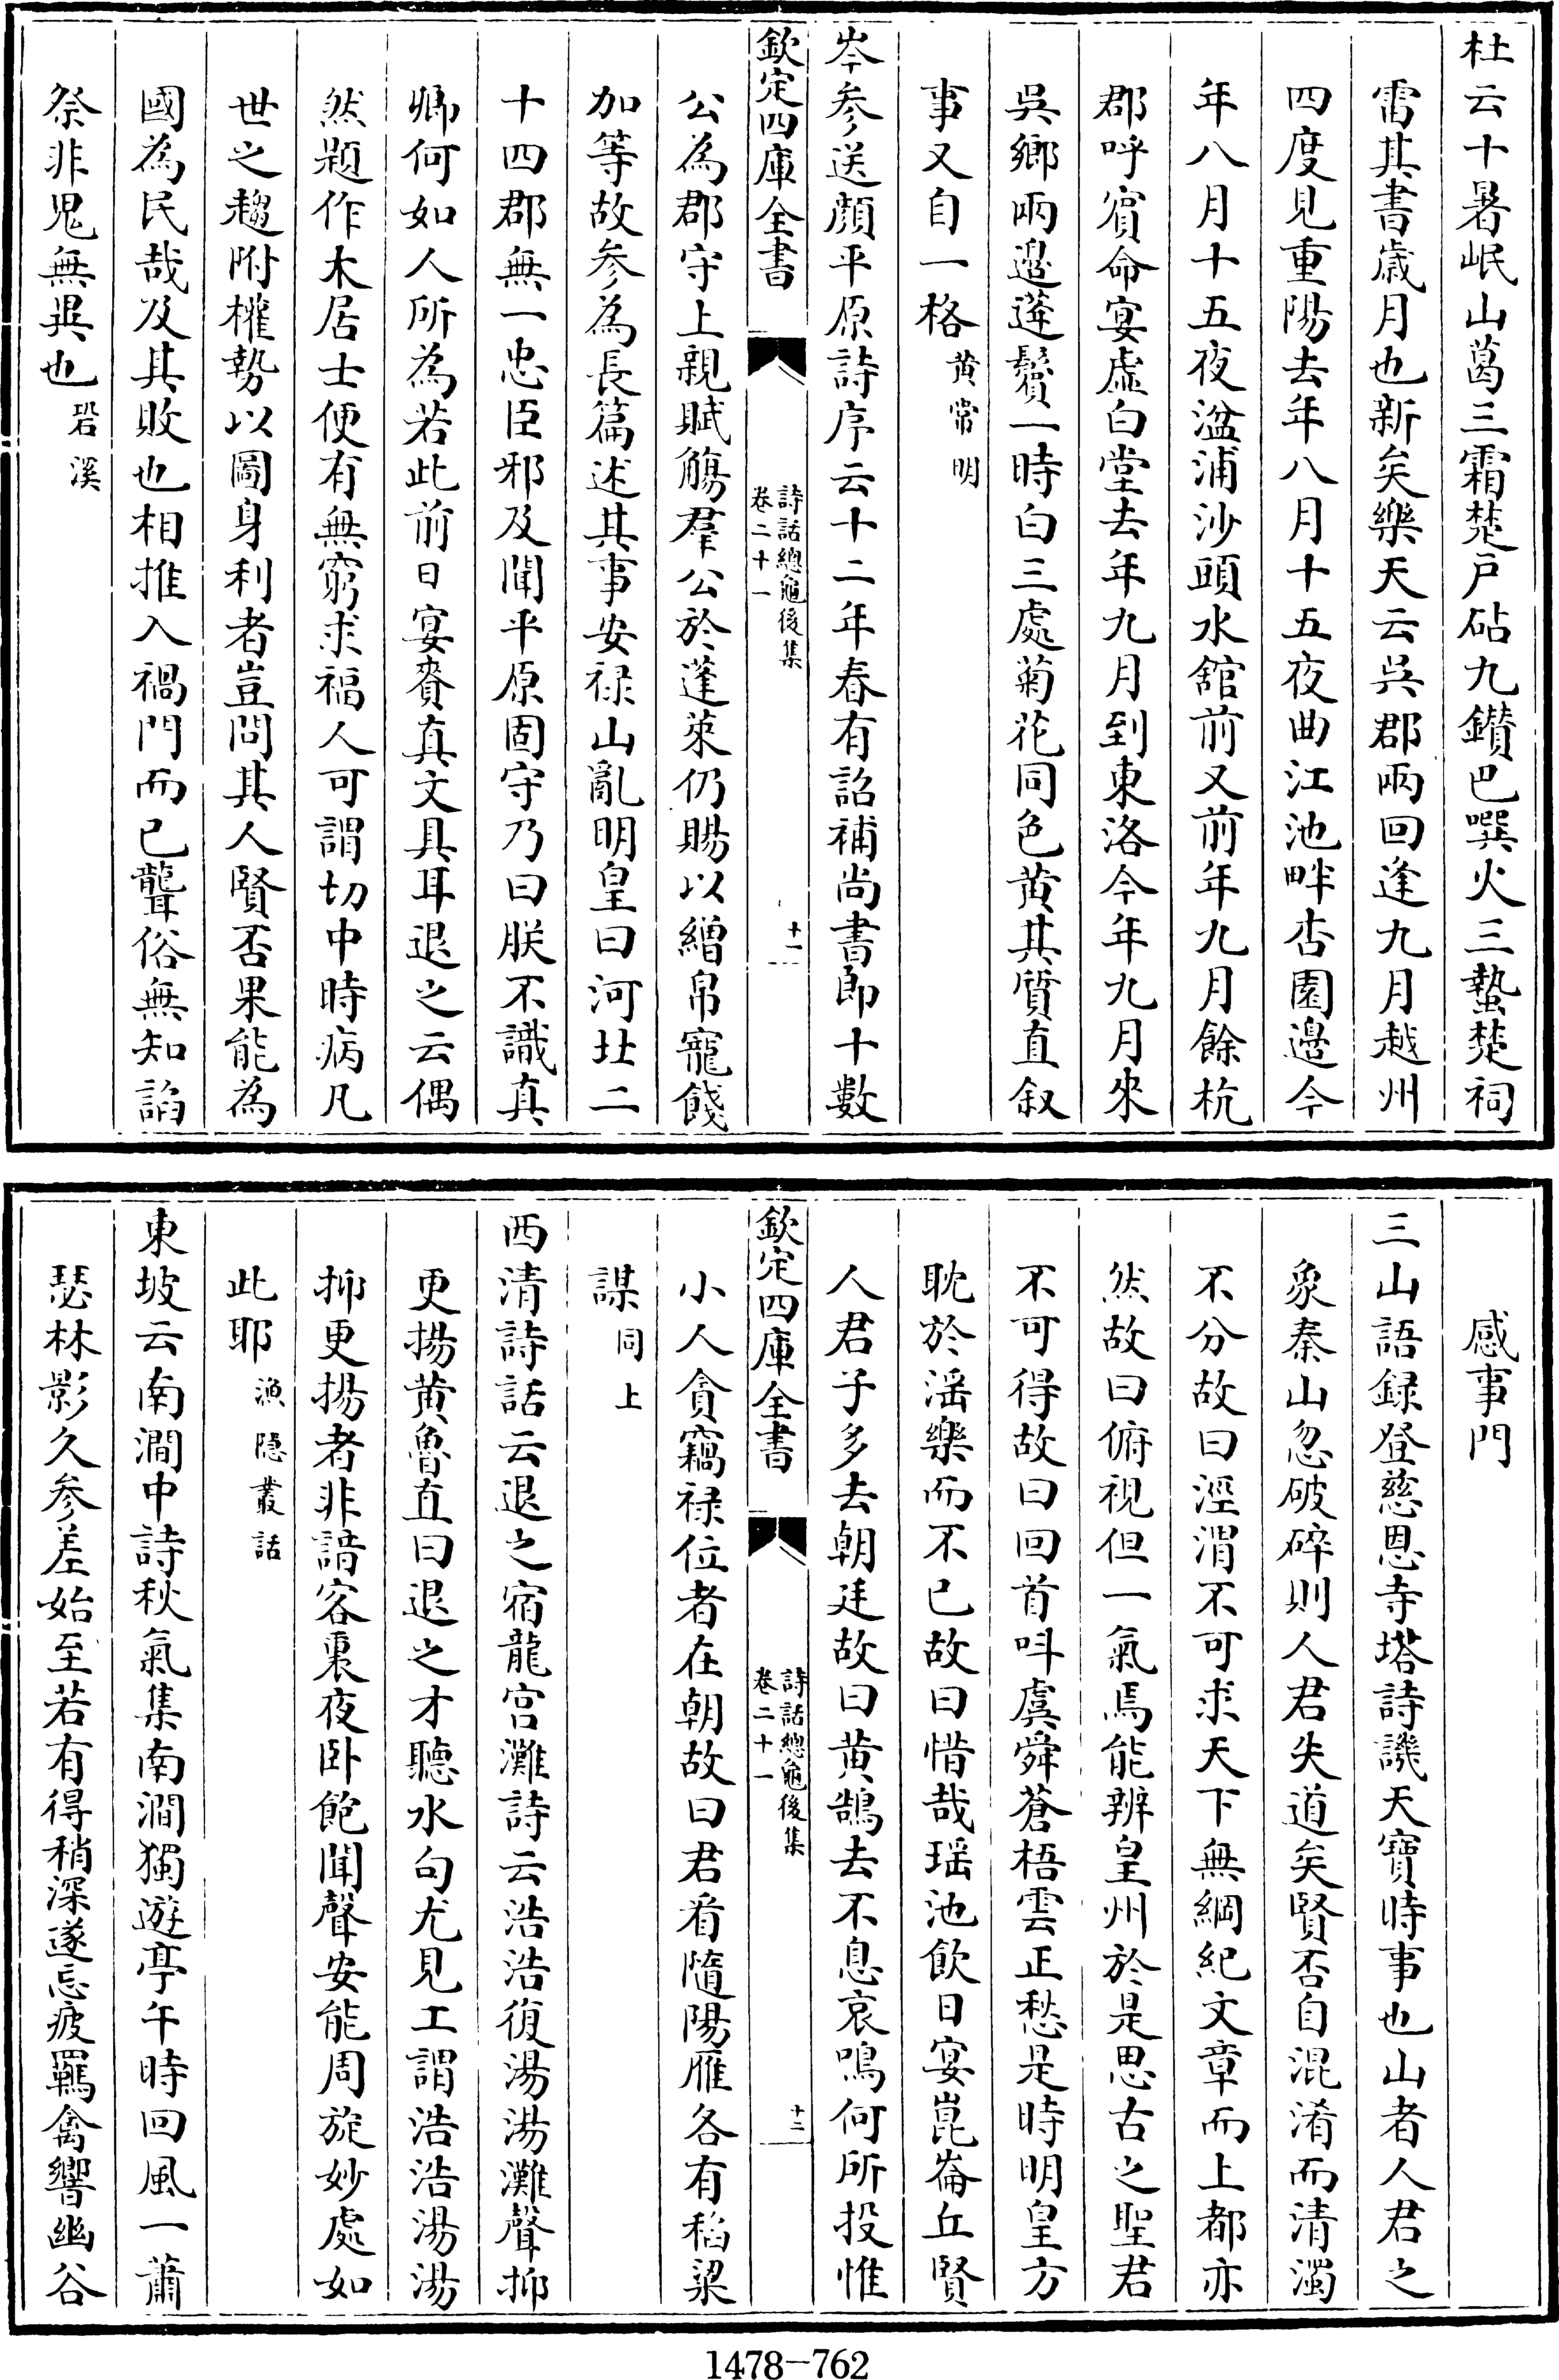 杜云十暑岷山葛三霜楚戶砧九鑽巴噀火三蟄楚祠
雷其書歲月也新矣樂天云吳郡兩回逢九月越州
四度見重陽去年八月十五夜曲江池畔杏園邊今
年八月十五夜湓浦沙頭水館前又前年九月餘杭
郡呼賓命宴虛白堂去年九月到東洛今年九月來
吳鄉兩邊蓬鬢一時白三處菊花同色黄其質直叙
事又自一格黄常明
岑参送顔平原詩序云十二年春有詔補尚書郎十數
欽定四庫全書
詩話總龜後集
卷二十一
十一
公為郡守上親賦觴羣公於蓬萊仍賜以繒帛寵餞
加等故参為長篇述其事安禄山亂明皇曰河北二
十四郡無一忠臣邪及聞平原固守乃曰朕不識真
卿何如人所為若此前日宴賚真文具耳退之云偶
然題作木居士便有無窮求福人可謂切中時病凡
世之趨附權勢以圖身利者豈問其人賢否果能為
國為民哉及其敗也相推入禍門而已聾俗無知諂
祭非鬼無異也䂬溪
感事門
三山語録登慈恩寺塔詩譏天寶時事也山者人君之
象秦山忽破碎則人君失道矣賢否自混淆而清濁
不分故曰涇渭不可求天下無綱紀文章而上都亦
然故曰俯視但一氣焉能辨皇州於是思古之聖君
不可得故曰回首叫虞舜蒼梧雲正愁是時明皇方
耽於滛樂而不已故曰惜哉瑶池飲日宴崑崙丘賢
人君子多去朝廷故曰黄鵠去不息哀鳴何所投惟
欽定四庫全書
詩話總龜後集
卷二十一
十二
小人貪竊禄位者在朝故曰君看隨陽雁各有稻粱
謀同上
西清詩話云退之宿龍宫灘詩云浩浩復湯湯灘聲抑
更揚黄魯直曰退之才聽水句尤見工謂浩浩湯湯
抑更揚者非諳客裏夜卧飽聞聲安能周旋妙處如
此耶漁隱叢話
東坡云南澗中詩秋氣集南澗獨遊亭午時回風一蕭
瑟林影久参差始至若有得稍深遂忘疲羈禽響幽谷
1478-762